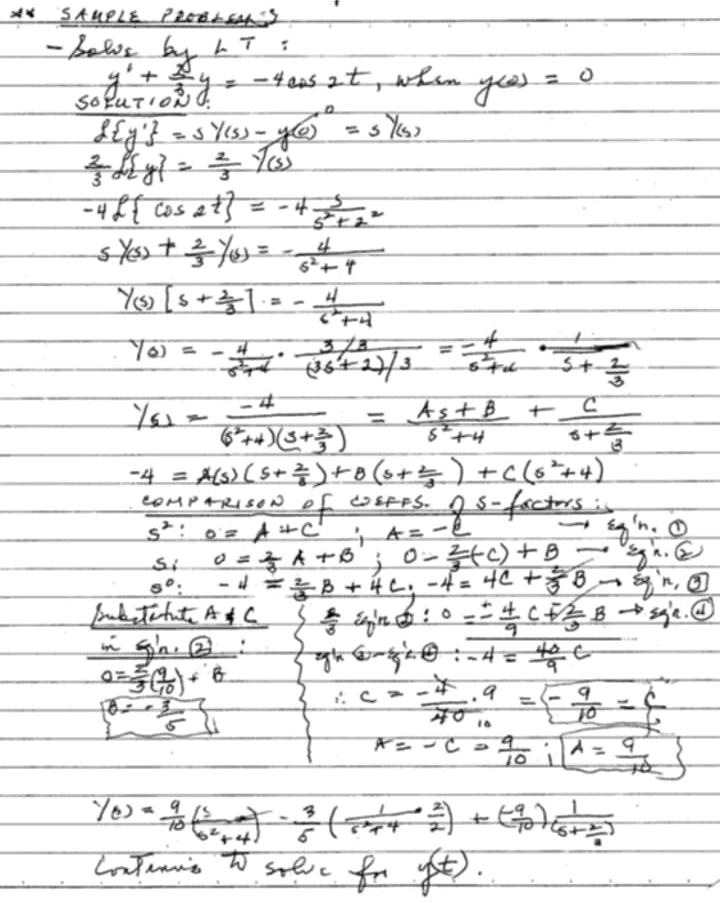 ** SAMPLE PROBLEMS
- Solve by LT :
y' + 2/3 y = -4 cos 2t, when y(0) = 0
SOLUTION:
ℒ{y'} = sY(s) - y(0) 0 = sY(s)
2/3 ℒ{y} = 2/3 Y(s)
-4ℒ{cos 2t} = -4 s/(s²+2²)
sY(s) + 2/3 Y(s) = - 4/(s²+4)
Y(s) [s + 2/3] = - 4/(s²+4)
Y(s) = - 4/(s²+4) · (3/3)/((3s+2)/3) = -4/(s²+4) · 1/(s + 2/3)
Y(s) = -4/((s²+4)(s+2/3)) = (As+B)/(s²+4) + C/(s+2/3)
-4 = A(s)(s+2/3) + B(s+2/3) + C(s²+4)
COMPARISON of COEFFS. of s-factors:
s²: 0 = A + C ; A = -C → Eq'n. ①
s: 0 = 2/3 A + B ; 0 = 2/3(-C) + B → Eq'n. ②
s⁰: -4 = 2/3 B + 4C; -4 = 4C + 2/3 B → Eq'n. ③
Substitute A & C
in Eq'n. ② :
0 = 2/3 (9/10) + B
B = - 3/5
2/3 Eq'n ② : 0 = - 4/9 C + 2/3 B → Eq'n. ④
Eq'n ③ - Eq'n ④ : -4 = 40/9 C
∴ C = -4/40 · 9 10 = - 9/10 = C
A = -C = 9/10 ; A = 9/10
Y(s) = 9/10 (s/(s²+4)) - 3/5 (1/(s²+4) · 2/2) + (-9/10) 1/(s+2/3)
Continue to solve for y(t).